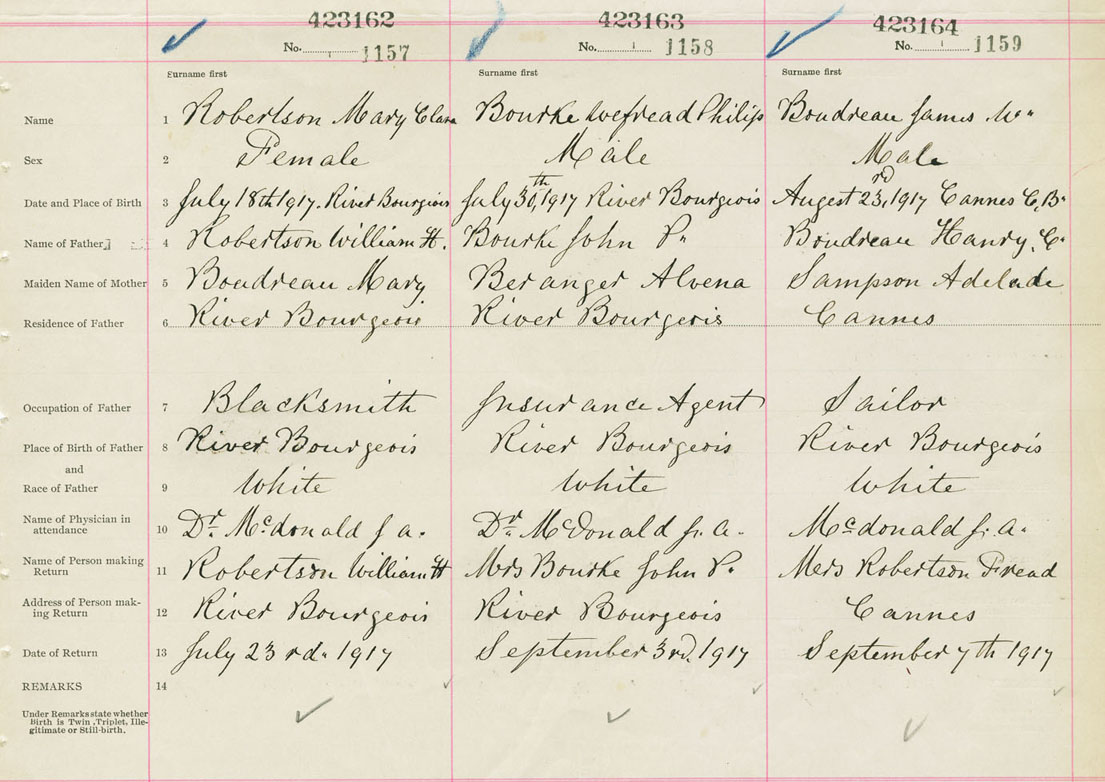 423162 423163 423164
No. 1157 No. 1158 No. 1159
Surname first Surname first Surname first
Name 1 Robertson Mary Clara Bourke Wefread Philip Boudreau James Mc
Sex 2 Female Male Male
Date and Place of Birth 3 July 18th 1917. River Bourgeois July 30th, 1917 River Bourgeois Augest 23rd, 1917 Cannes C. B.
Name of Father 4 Robertson William H. Bourke John P. Boudreau Hanry. C.
Maiden Name of Mother 5 Boudreau Mary Beranger Alvena Sampson Adelade
Residence of Father 6 River Bourgeois River Bourgeois Cannes
Occupation of Father 7 Blacksmith Insurance Agent Sailor
Place of Birth of Father 8 River Bourgeois River Bourgeois River Bourgeois
and
Race of Father 9 White White White
Name of Physician in
attendance 10 Dr. Mcdonald J a. Dr. McDonald J. a. Mcdonald J. a.
Name of Person making
Return 11 Robertson William H Mrs Bourke John P. Mers Robertson Fread
Address of Person mak-
ing Return 12 River Bourgeois River Bourgeois Cannes
Date of Return 13 July 23rd. 1917 September 3rd. 1917 September 7th 1917
REMARKS 14
Under Remarks state whether
Birth is Twin, Triplet, Ille-
gitimate or Still-birth.